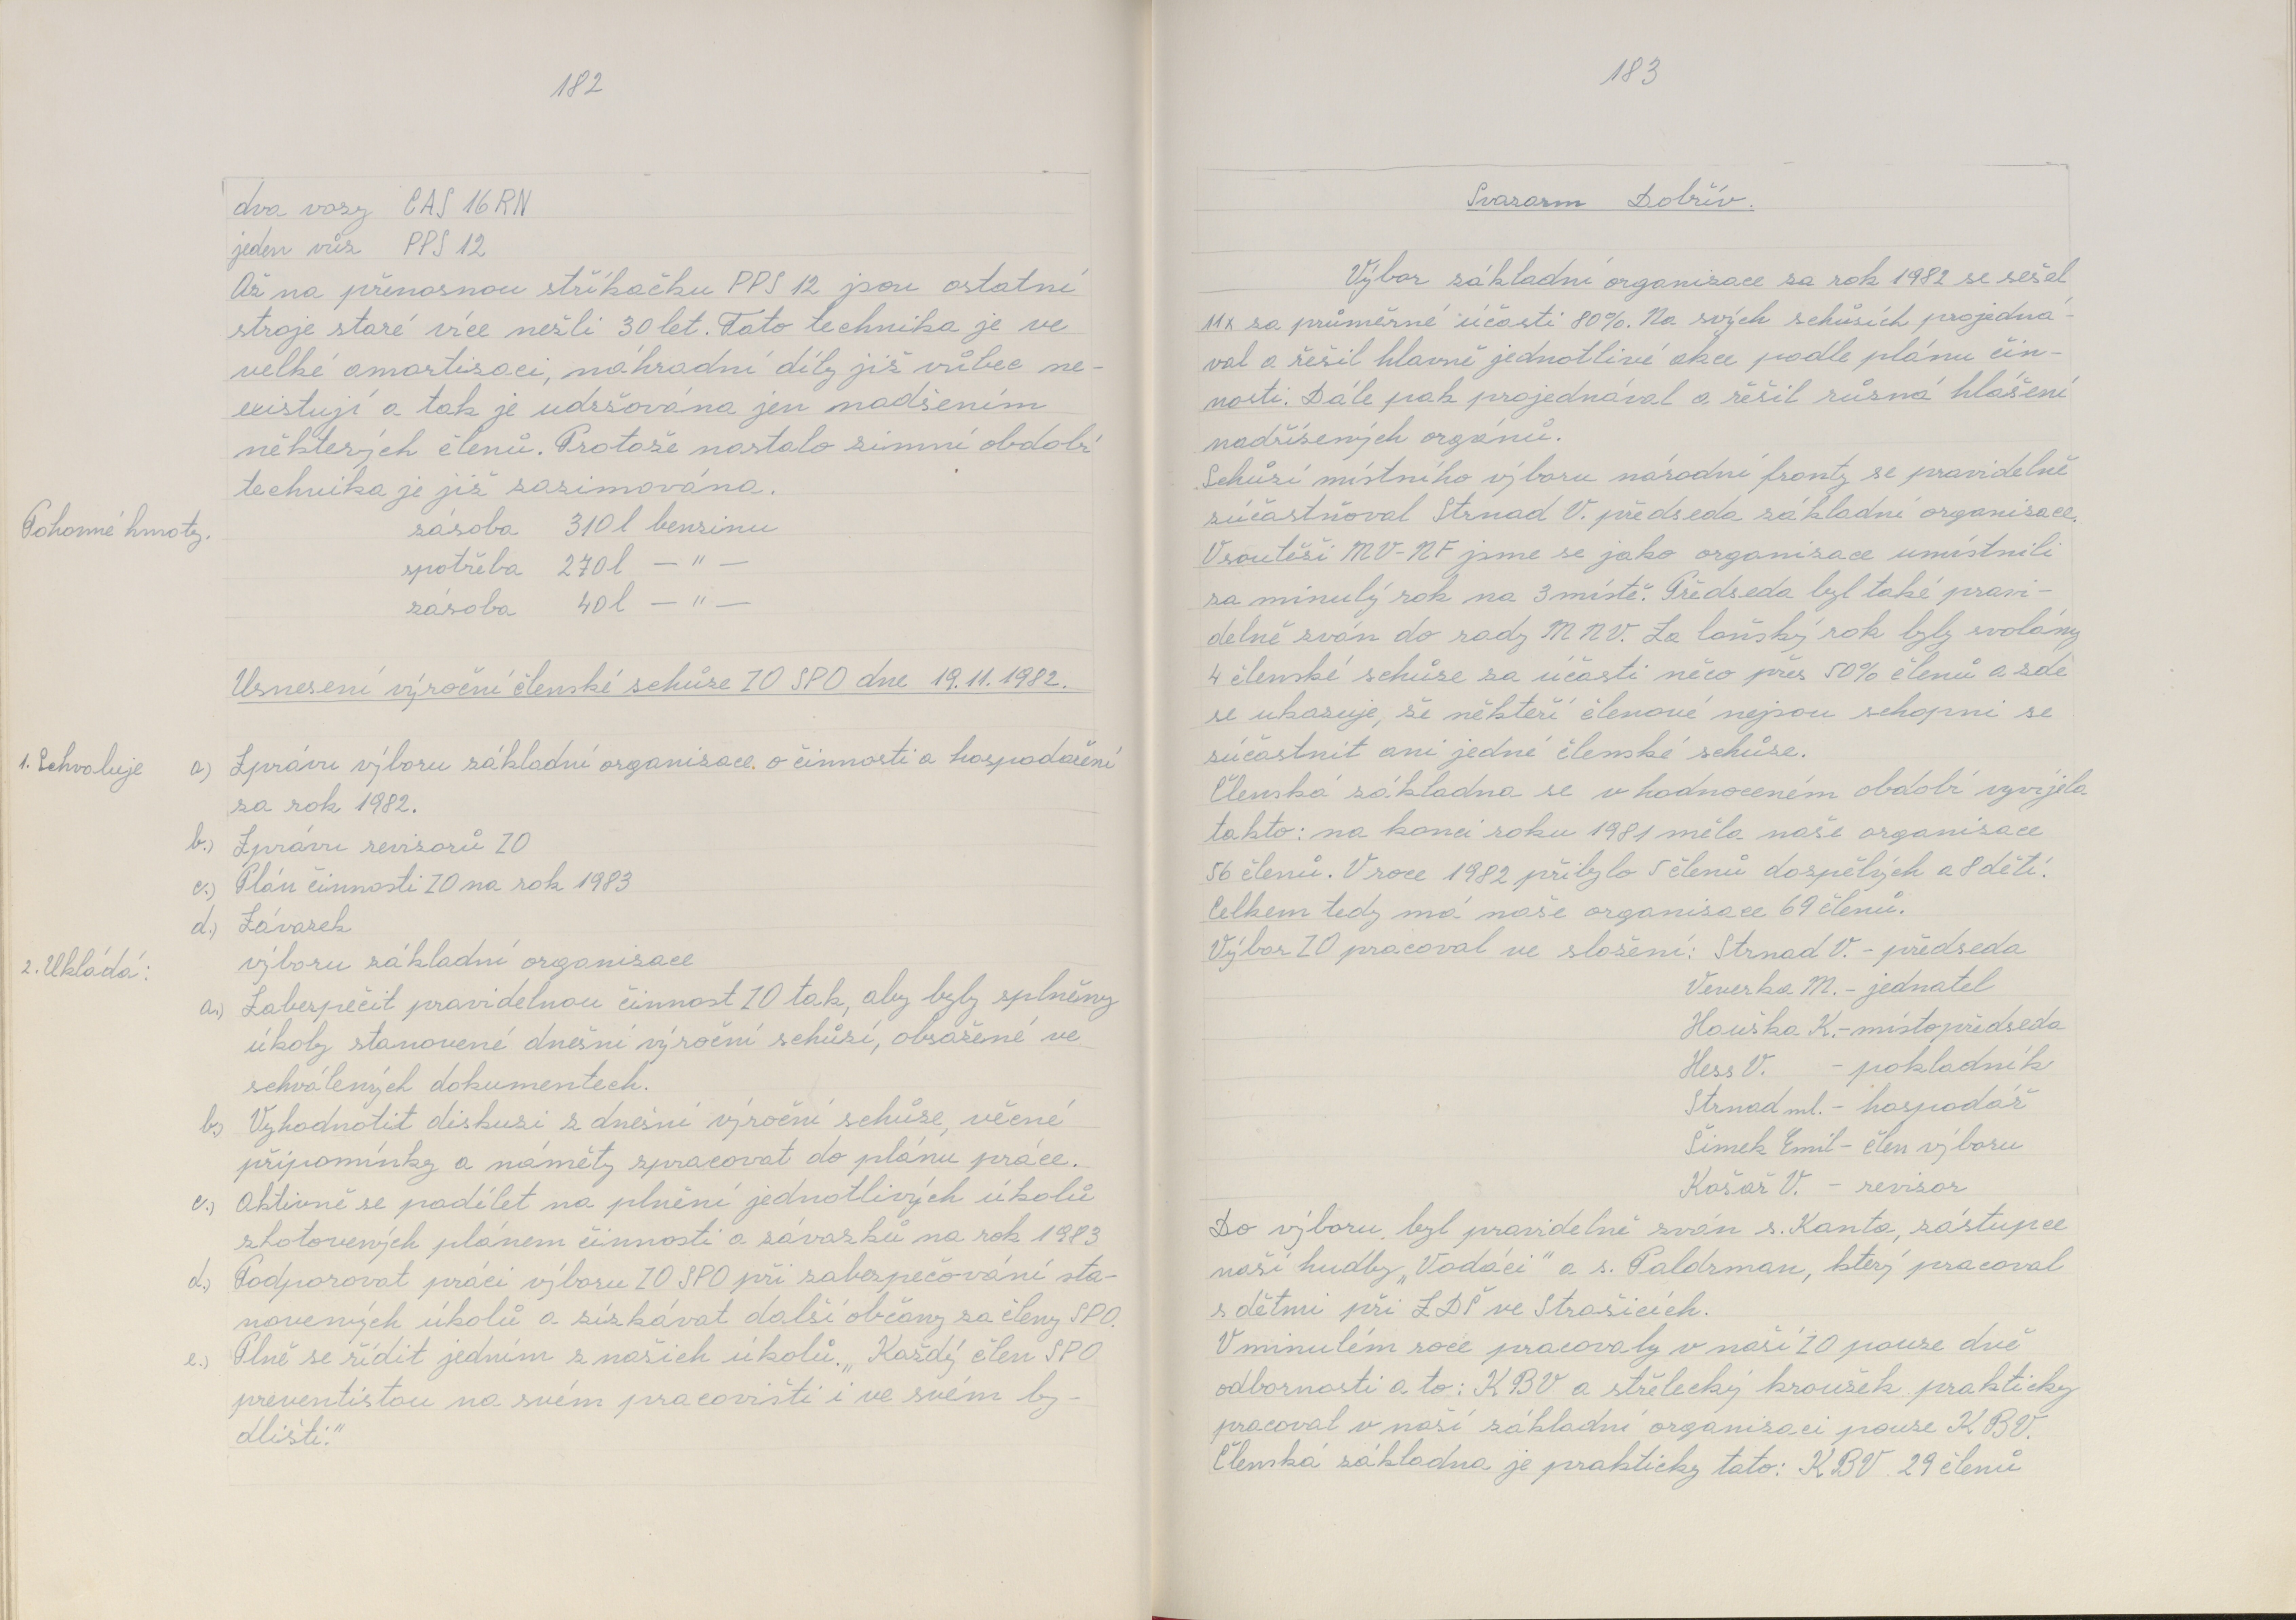 182
dva vozy CAS 16 RN
jeden vůz PPS 12
Až na přenosnou stříkačku PPS 12 jsou ostatní
stroje staré více nežli 30 let. Tato technika je ve
velké amortizaci, náhradní díly již vůbec ne-
existují a tak je udržována jen nadšením
některých členů. Protože nastalo zimní období
technika je již zazimována.
Pohonné hmoty.
zásoba 310 l benzinu
spotřeba 270 l — " —
zásoba 40 l — " —
Usnesení výroční členské schůze ZO SPO dne 19.11.1982.
1. Schvaluje a) Zprávu výboru základní organizace o činnosti a hospodaření
za rok 1982.
b.) Zprávu revizorů ZO
c.) Plán činnosti ZO na rok 1983
d.) Závazek
2. Ukládá: výboru základní organizace
a.) Zabezpečit pravidelnou činnost ZO tak, aby byly splněny
úkoly stanovené dnešní výroční schůzí, obsažené ve
schválených dokumentech.
b) Vyhodnotit diskuzi z dnešní výroční schůze, věcné
připomínky a náměty zpracovat do plánu práce.
c.) Aktivně se podílet na plnění jednotlivých úkolů
zhotovených plánem činnosti a závazků na rok 1983
d.) Podporovat práci výboru ZO SPO při zabezpečování sta-
novených úkolů a získávat další občany za členy SPO.
e.) Plně se řídit jedním z našich úkolů. „Každý člen SPO
preventistou na svém pracovišti i ve svém by-
dlišti."
183
Svazarm Dobřív.
Výbor základní organizace za rok 1982 se sešel
11x za průměrné účasti 80%. Na svých schůzích projedná-
val a řešil hlavně jednotlivé akce podle plánu čin-
nosti. Dále pak projednával a řešil různá hlášení
nadřízených orgánů.
Schůzí místního výboru národní fronty se pravidelně
zúčastňoval Strnad V. předseda základní organizace.
V soutěži MV-NF jsme se jako organizace umístnili
za minulý rok na 3 místě. Předseda byl také pravi-
delně zván do rady MNV. Za loňský rok byly svolány
4 členské schůze za účasti něco přes 50% členů a zde
se ukazuje, že někteří členové nejsou schopni se
zúčastnit ani jedné členské schůze.
Členská základna se v hodnoceném období vyvíjela
takto: na konci roku 1981 měla naše organizace
56 členů. V roce 1982 přibylo 5 členů dospělých a 8 dětí.
Celkem tedy má naše organizace 69 členů.
Výbor ZO pracoval ve složení: Strnad V. - předseda
Veverka M. - jednatel
Houška K. - místopředseda
Hess V. - pokladník
Strnad ml. - hospodář
Šimek Emil - člen výboru
Košař V. - revizor
Do výboru byl pravidelně zván s. Kanta, zástupce
naší hudby „Vodáci" a s. Paldrman, který pracoval
s dětmi při ZDŠ ve Strašicích.
V minulém roce pracovaly v naší ZO pouze dvě
odbornosti a to: KBV a střelecký kroužek prakticky
pracoval v naší základní organizaci pouze KBV.
Členská základna je prakticky tato: KBV 29 členů